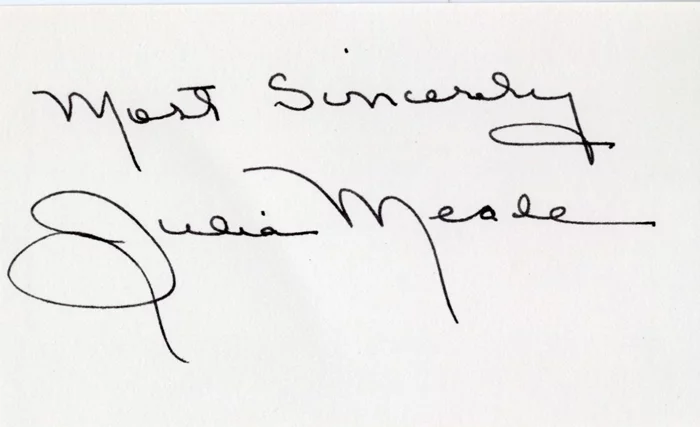 Most Sincerely
Julia Meade